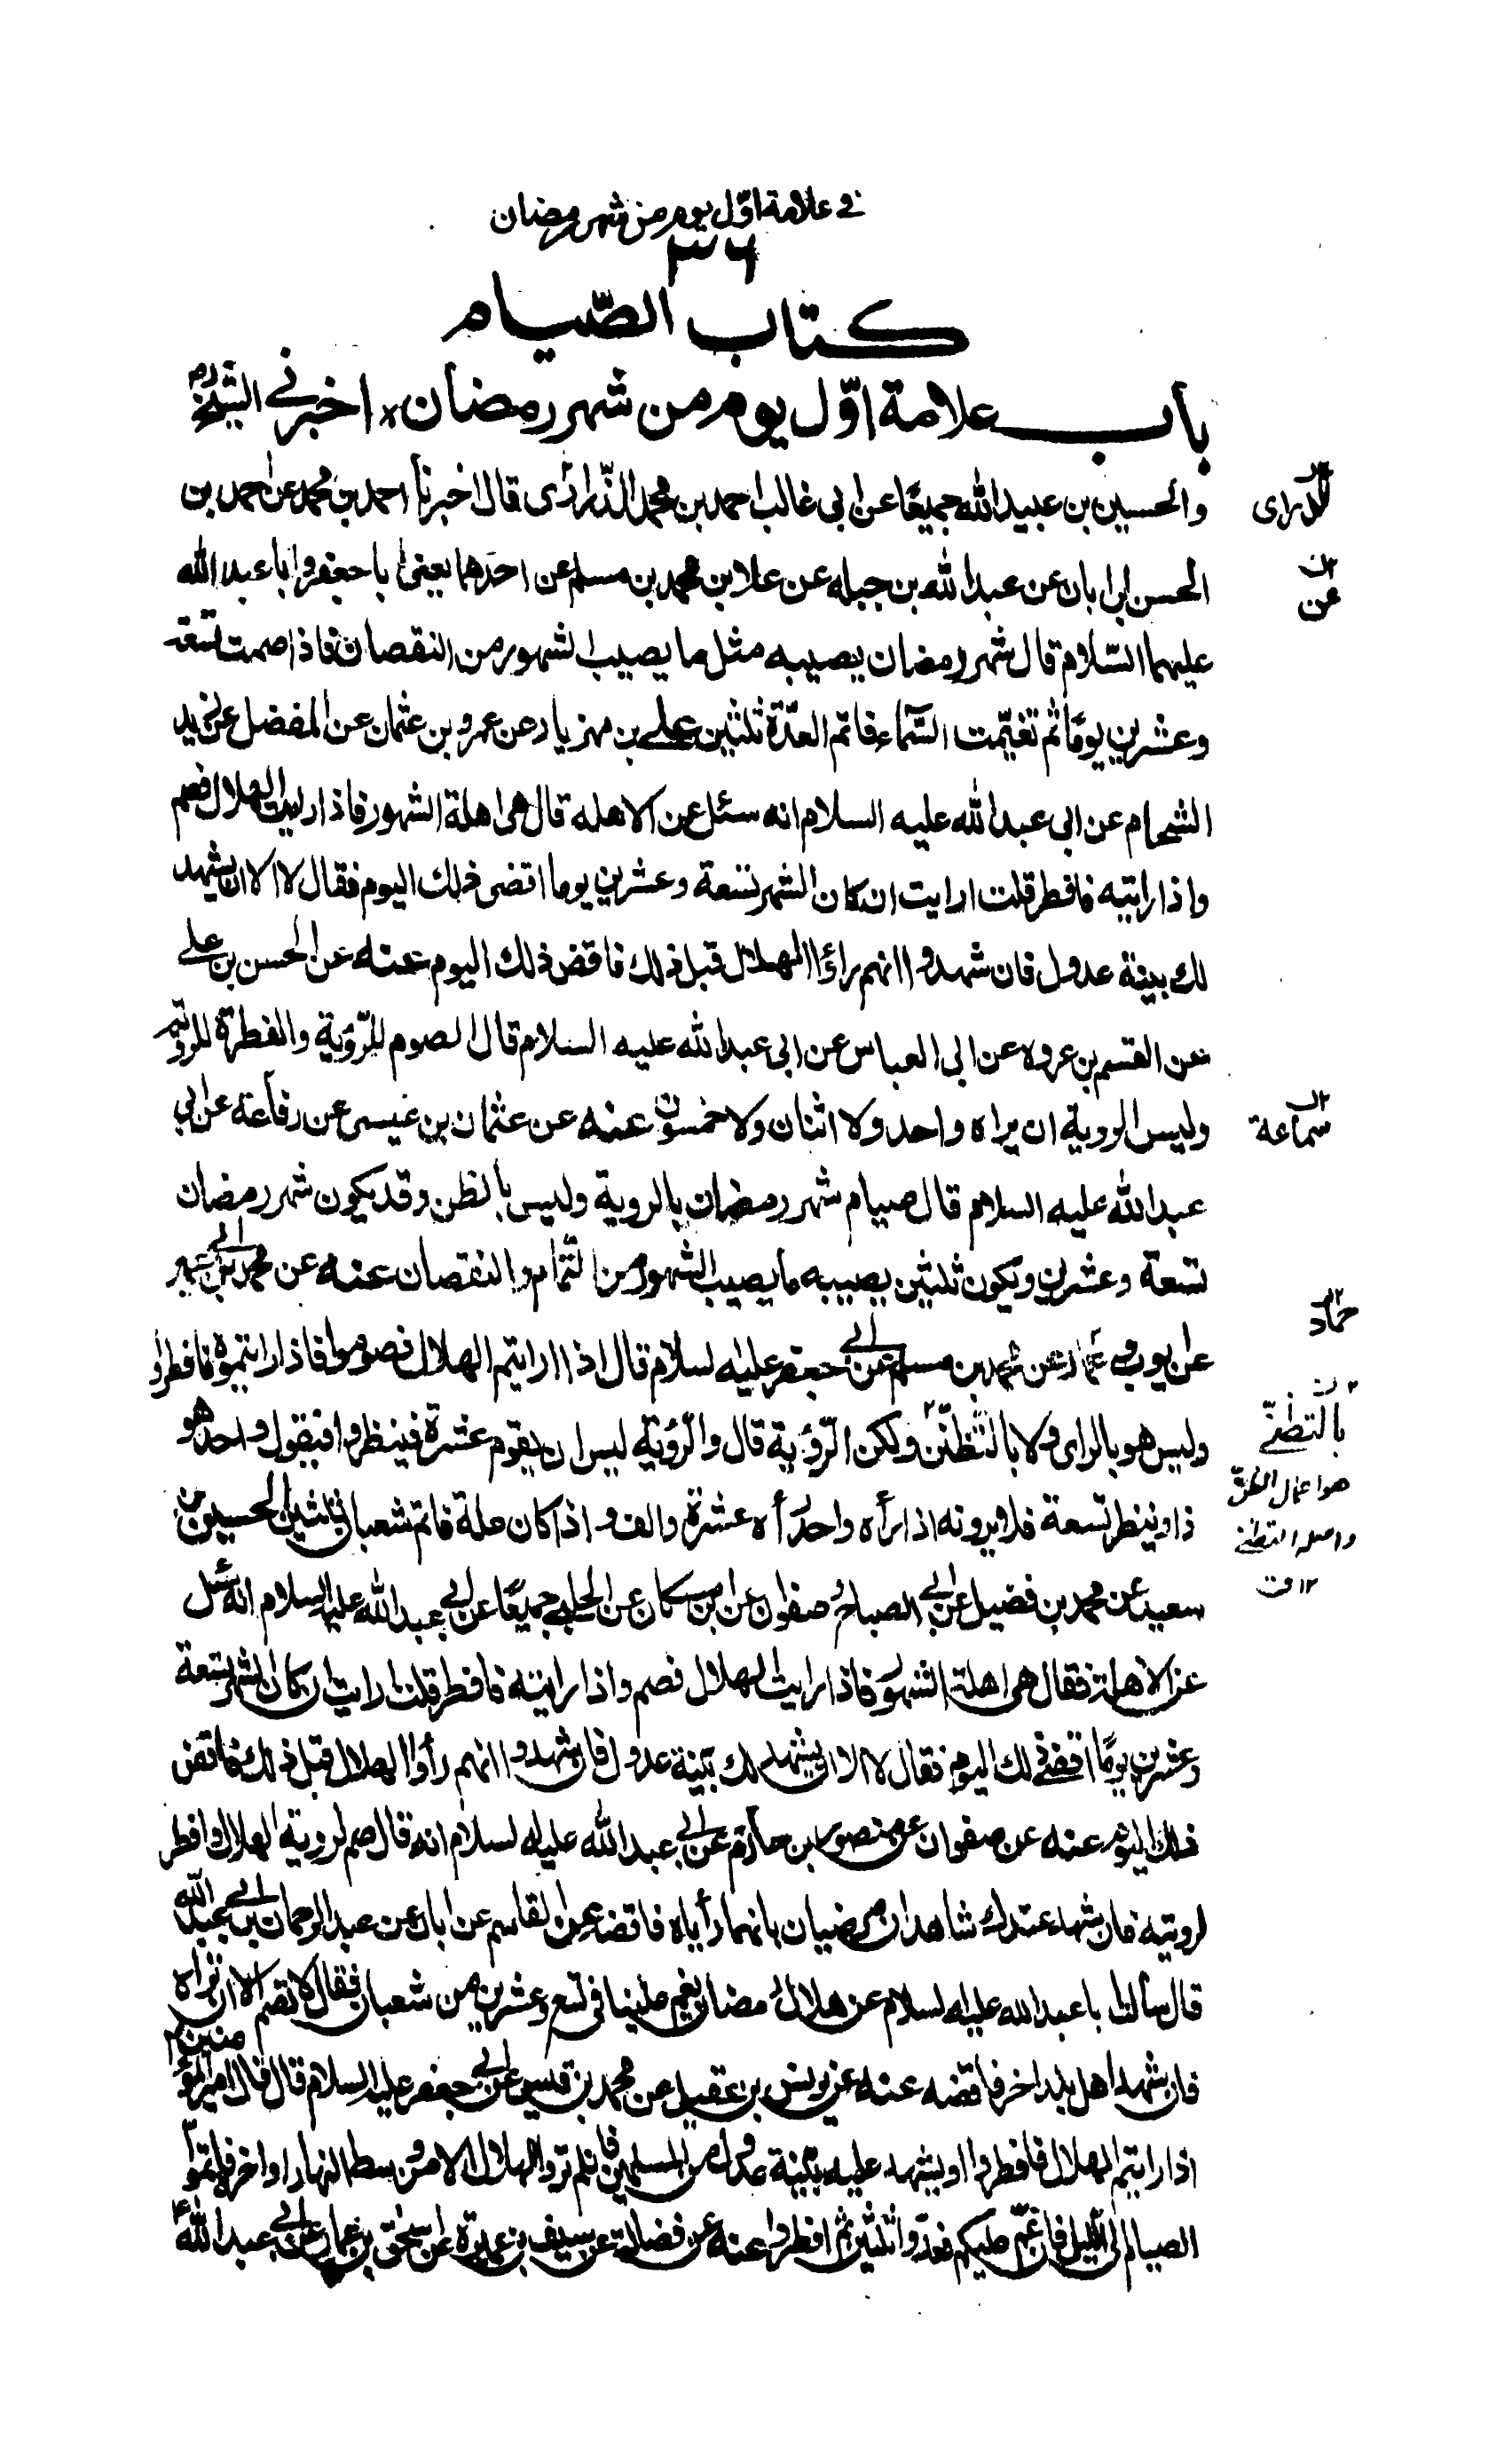 في علامة اوّل يوم من شهر رمضان
٣٦
كتاب الصّيام
باب علامة اوّل يوم من شهر رمضان اخبرني الشيخ ره
والحسين بن عبيد الله جميعًا عن ابي غالب احمد بن محمد الذّراري قال اخبرنا احمد بن محمد عن احمد بن
الحسن ابن ابان عن عبد الله بن جبله عن علا بن محمد بن مسلم عن احدهما يعني ابا جعفر وابا عبد الله
عليهما السّلام قال شهر رمضان يصيبه مثل ما يصيب الشهور من النقصان فاذا صمت تسعة
وعشرين يومًا ثم تغيّمت السّماء فاتم العدّة ثلثين علي بن مهزيار عن عمرو بن عثمان عن المفضل عن زيد
الشحام عن ابي عبد الله عليه السلام انه سئل عن الاهله قال هى اهلة الشهور فاذا رايت الهلال فصم
واذا رايته فافطر قلت ارايت ان كان الشهر تسعة وعشرين يوما اقضى ذلك اليوم فقال لا الا ان يشهد
لك بينة عدول فان شهدوا انهم راؤا الهلال قبل ذلك فاقض ذلك اليوم عنه عن الحسن بن علي
عن القسم بن عروه عن ابي العباس عن ابي عبد الله عليه السلام قال الصوم للرّؤية والفطرة للرؤية
وليس الروية ان يراه واحد ولا اثنان ولا خمسون عنه عن عثمان بن عيسى عن رفاعة عن ابي
عبد الله عليه السلام قال صيام شهر رمضان بالروية وليس بالظن وقد يكون شهر رمضان
تسعة وعشرين ويكون ثلثين يصيبه ما يصيب الشهور من التمام والنقصان عنه عن محمد بن ابي عمير
عن ايوب وحماد عن محمد بن مسلم عن ابي جعفر عليه السلام قال اذا رايتم الهلال فصوموا فاذا رايتموه فافطروا
وليس هو بالراى ولا بالتّظنّن ولكن الرّؤية قال والرّؤية ليس ان يقوم عشرة فينظروا فيقول واحد هو
ذا وينظر تسعة فلا يرونه اذا رأه واحد رأه عشرة والف و اذا كان علة فاتم شعبان ثلثين الحسين بن
سعيد عن محمد بن فضيل عن ابي الصباح و صفوان عن ابن مسكان عن الحلبي جميعًا عن ابي عبد الله عليه السلام انه سئل
عن الاهلة فقال هى اهلة الشهور فاذا رايت الهلال فصم واذا رايته فافطر قلت ارايت ان كان الشهر تسعة
وعشرين يومًا اقضي ذلك اليوم فقال لا الا ان يشهد لك بيّنة عدول فان شهدوا انهم رأوا الهلال قبل ذلك فاقض
ذلك اليوم عنه عن صفوان عن منصور بن حازم عن ابي عبد الله عليه السلام انه قال صم لروية الهلال وافطر
لرويته فان شهد عندك شاهدان مرضيان بانهما رأياه فاقضه عن القاسم عن ابان عن عبد الرحمان بن ابي عبد الله
قال سألت ابا عبد الله عليه السلام عن هلال رمضان يغم علينا في تسع وعشرين من شعبان فقال لا تصم الا ان تراه
فان شهد اهل بلد اخر فاقضه عنه عن يوسف بن عقيل عن محمد بن قيس عن ابي جعفر عليه السلام قال قال امير المؤمنين ع
اذا رايتم الهلال فافطروا او يشهد عليه بيّنة عدول من المسلمين فان لم تروا الهلال الا من وسط النهار او اخره فاتموا
الصيام الى الليل فان غمّ عليكم فعدّوا ثلثين ثم افطروا عنه عن فضالة عن سيف بن عميرة عن اسحق بن عمار عن ابي عبد الله ع
الزراى
عن
سماعة
حماد
بالتظنّي
هو اعمال الظنّ
واصله التظنن
١٢ ق